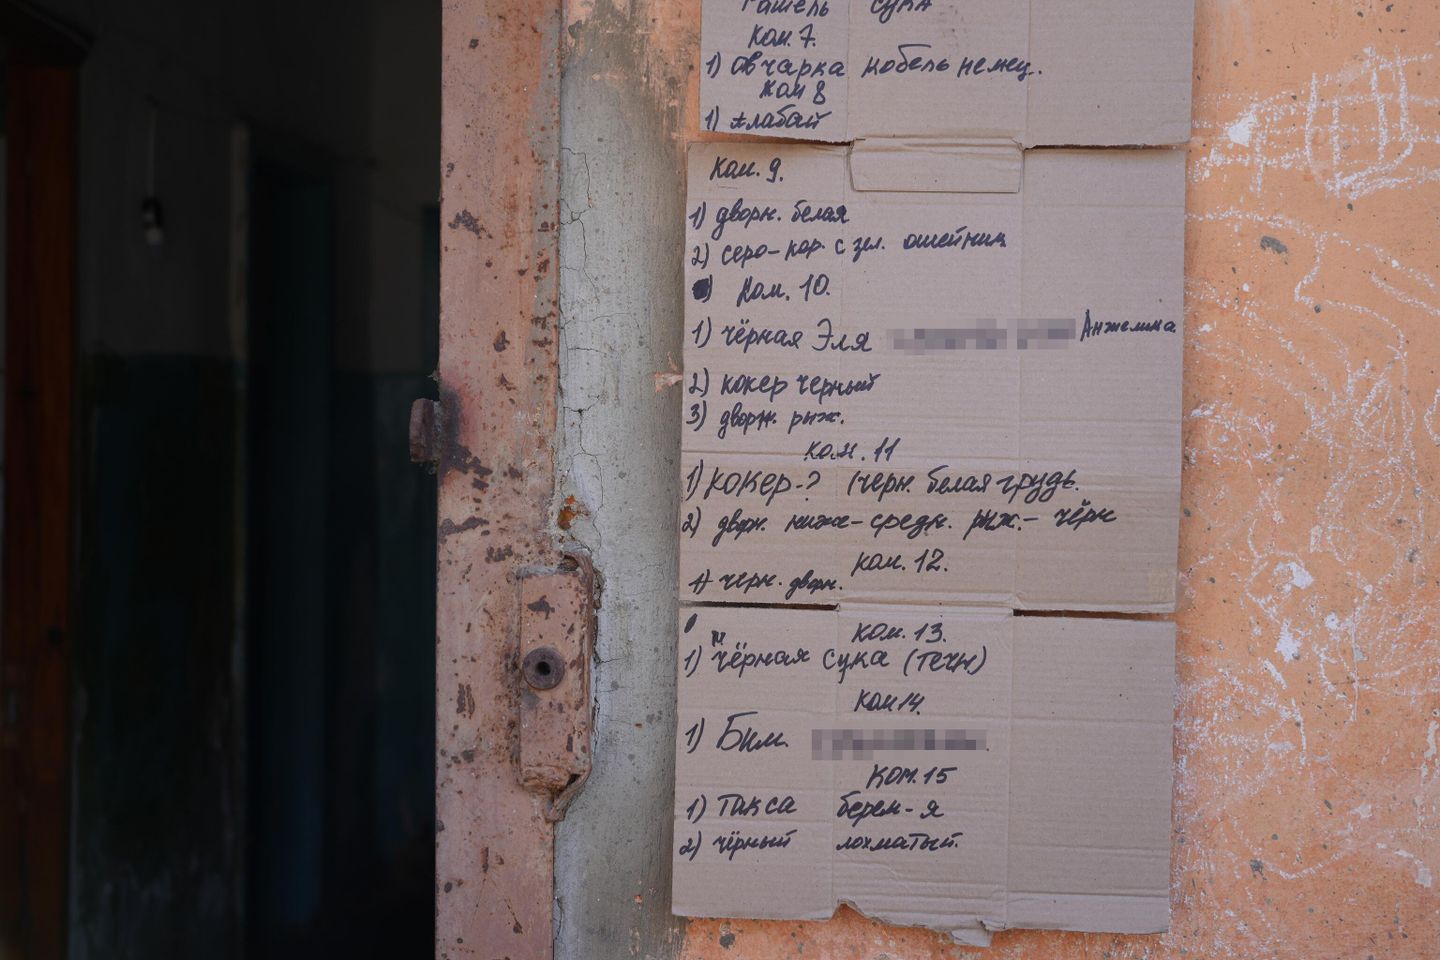 сука
ком. 7.
1) овчарка кобель немец.
ком 8
1) алабай
ком. 9.
1) дворн. белая
2) серо-кор. с зел. ошейник
ком. 10.
1) чёрная Эля Анжелика
2) кокер черный
3) дворн. рыж.
ком. 11
1) кокер-? (черн. белая грудь.
2) дворн. ниже-средн. рыж.- чёрн
ком. 12.
1) черн. дворн.
ком. 13.
1) чёрная сука (течн)
ком 14.
1) Бим.
ком. 15
1) такса берем-я
2) чёрный лохматый.